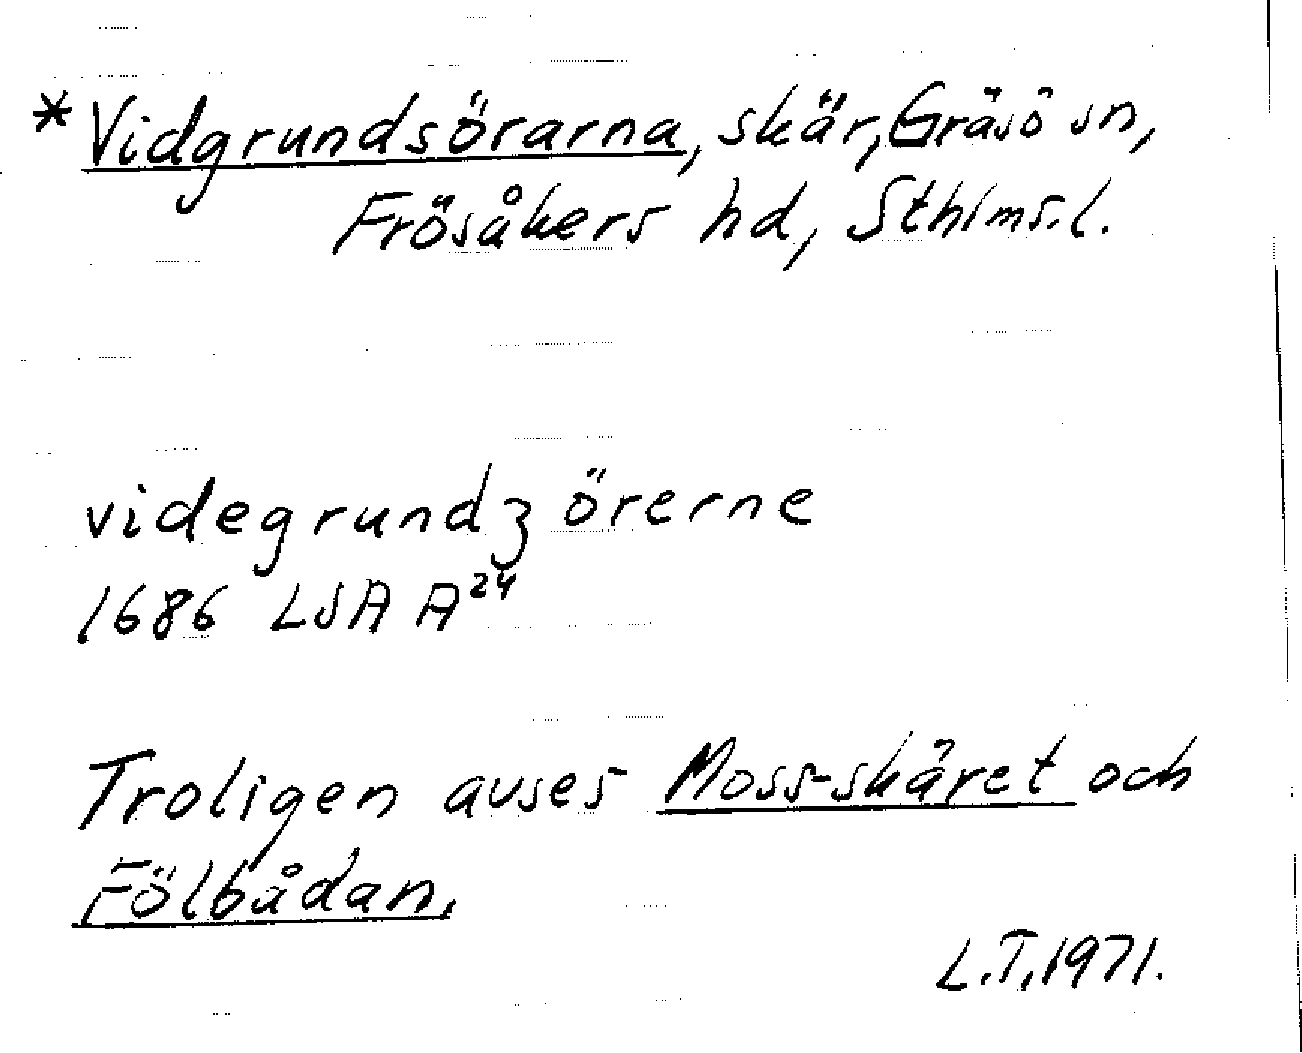 *Vidgrundsörarna, skär, Gräsö sn,
Frösåkers hd, Sthlms.l.
videgrundz örerne
1686 LSA A24
Troligen avses Moss-skäret och
Fölbådan.
L.T. 1971.